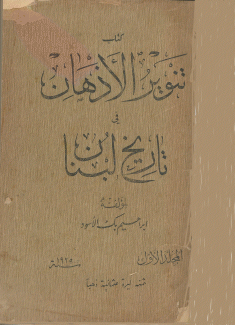 كتاب
تنوير الأذهان
في
تاريخ لبنان
لمؤلفه
ابراهيم بك الأسود
المجلد الأول
سنة ١٩٢٥